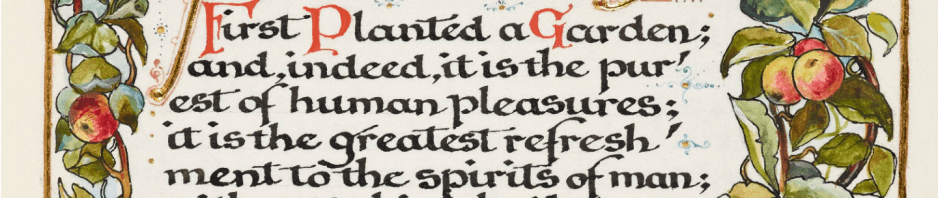 First Planted a Garden;
and, indeed, it is the pur'
est of human pleasures;
it is the greatest refresh'
ment to the spirits of man;